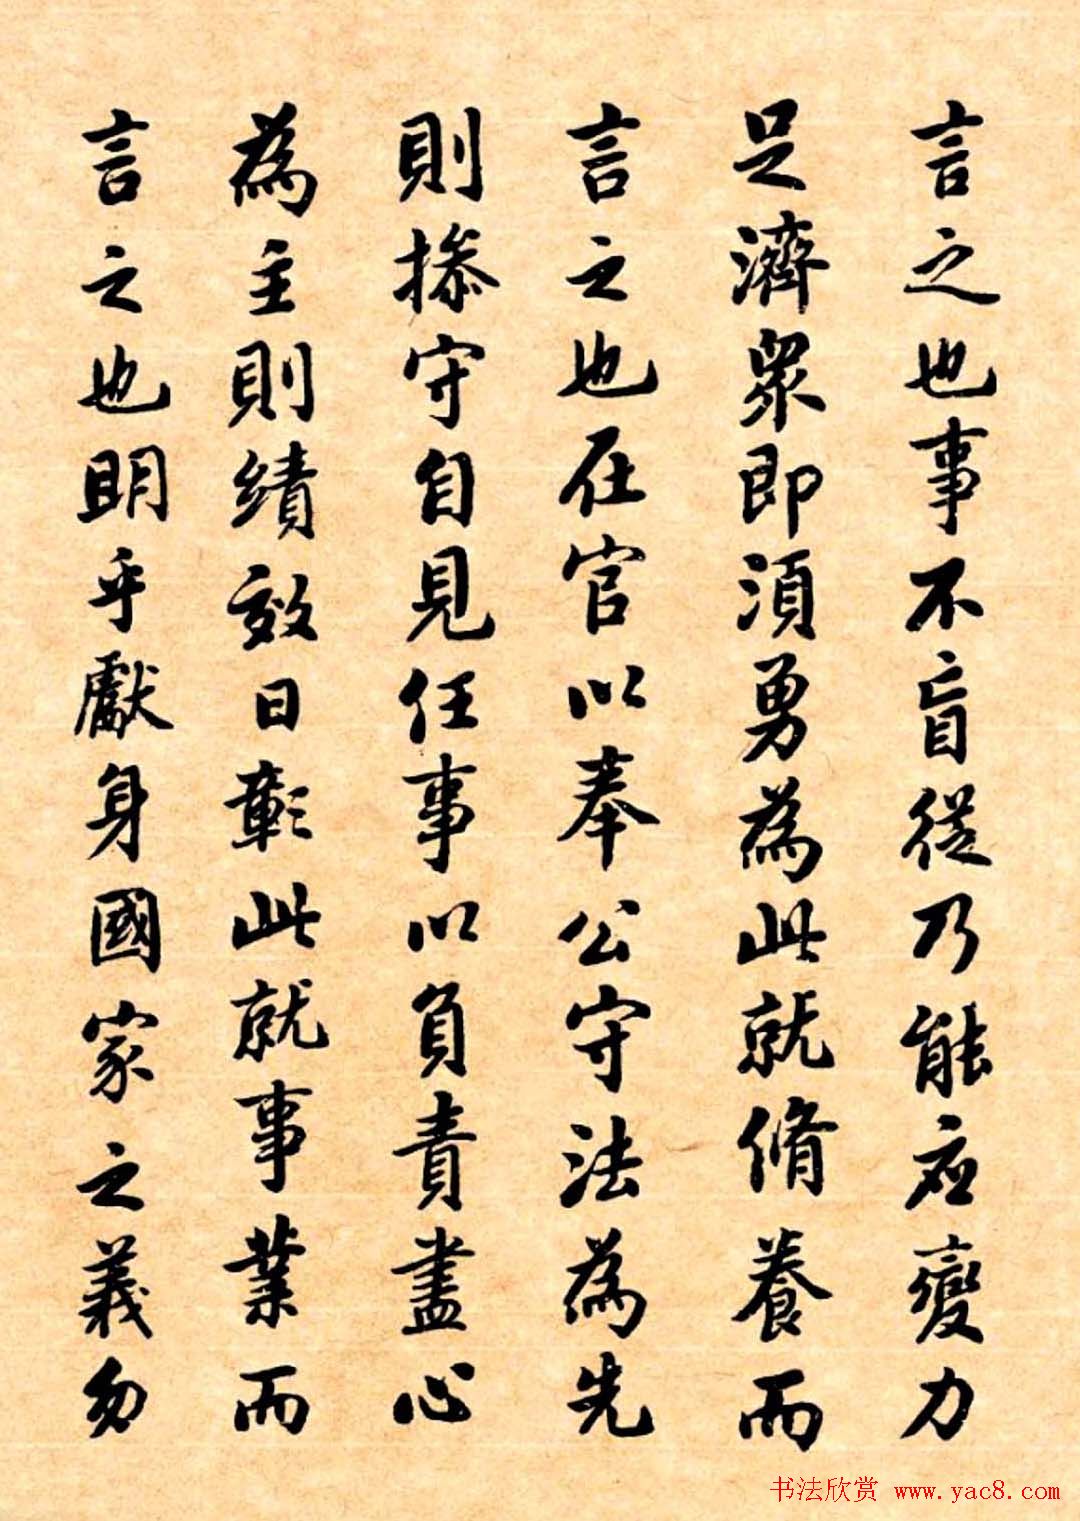 言之也事不盲從乃能应變力
足濟眾即須勇為此就脩養而
言之也在官以奉公守法為先
則操守自見任事以負責盡心
為主則績效日彰此就事業而
言之也明乎獻身國家之義勿
书法欣赏 www.yac8.com